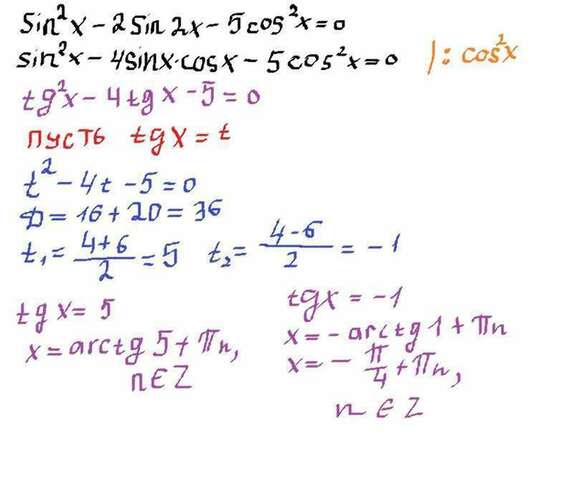 sin²x - 2sin2x - 5cos²x = 0
sin²x - 4sinx·cosx - 5cos²x = 0 /: cos²x
tg²x - 4tgx - 5 = 0
пусть tgx = t
t² - 4t - 5 = 0
D = 16 + 20 = 36
t₁ = (4+6)/2 = 5 t₂ = (4-6)/2 = -1
tgx = 5
x = arctg 5 + πn,
n ∈ Z
tgx = -1
x = - arctg 1 + πn
x = - π/4 + πn,
n ∈ Z